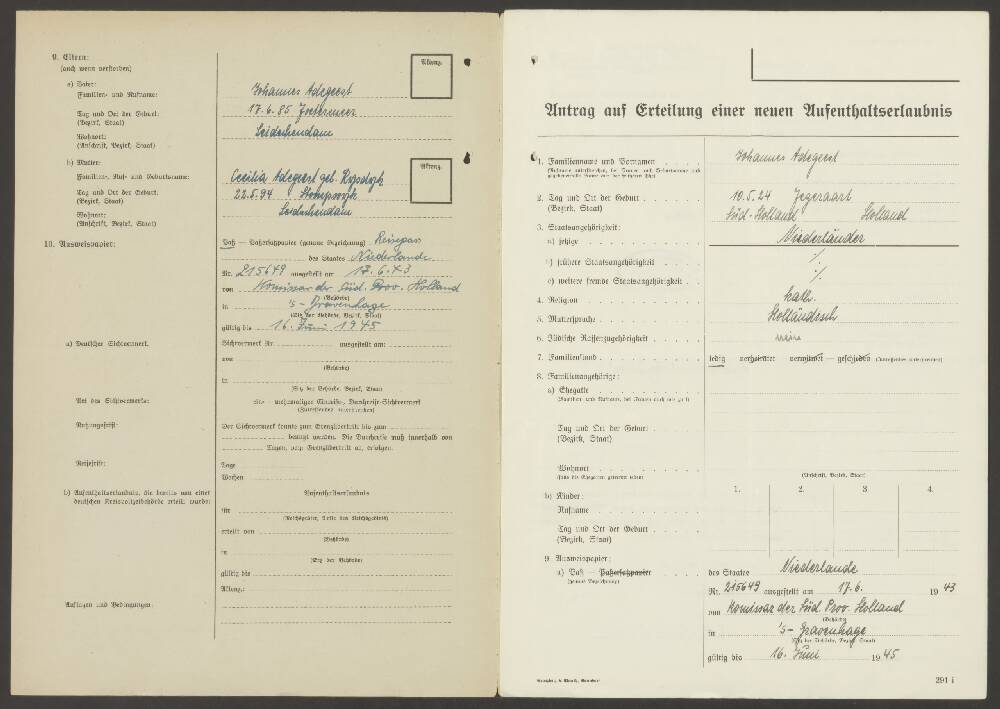 9. Eltern:
(auch wenn verstorben)
a) Vater:
Familien- und Rufname: Johannes Adegeest
Aktenz.
Tag und Ort der Geburt: 17.6.85 Zoetermeer
(Bezirk, Staat)
Wohnort: Leidschendam
(Anschrift, Bezirk, Staat)
b) Mutter:
Aktenz.
Familien-, Ruf- und Geburtsname: Cecilia Adegeest geb.
Tag und Ort der Geburt: 22.5.94 Stompwijk
(Bezirk, Staat)
Wohnort: Leidschendam
(Anschrift, Bezirk, Staat)
10. Ausweispapier: Paß — Paßersatzpapier (genaue Bezeichnung) Reisepas
des Staates Niederlande
Nr. 215649 ausgestellt am 17.6.43
von Komissar der Süd. Prov. Holland
(Behörde)
in 's-Gravenhage
(Sitz der Behörde, Bezirk, Staat)
gültig bis 16. Juni 1945
a) Deutscher Sichtvermerk: Sichtvermerk Nr. ausgestellt am:
von
(Behörde)
in
(Sitz der Behörde, Bezirk, Staat)
Art des Sichtvermerks: ein- — mehrmaliger Einreise-, Durchreise-Sichtvermerk
(Zutreffendes unterstreichen)
Nutzungsfrist: Der Sichtvermerk konnte zum Grenzübertritt bis zum
benutzt werden. Die Durchreise muß innerhalb von
Tagen, vom Grenzübertritt ab, erfolgen.
Reisefrist: Tage
Wochen
b) Aufenthaltserlaubnis, die bereits von einer
deutschen Kreispolizeibehörde erteilt wurde: Aufenthaltserlaubnis
für
(Reichsgebiet, Teile des Reichsgebiets)
erteilt von
(Behörde)
in
(Sitz der Behörde)
gültig bis
Aktenz.:
Auflagen und Bedingungen
Antrag auf Erteilung einer neuen Aufenthaltserlaubnis
1. Familienname und Vornamen Johannes Adegeest
2. Tag und Ort der Geburt 10.5.24 Jegeraart
(Bezirk, Staat) Süd-Holland Holland
3. Staatsangehörigkeit:
a) jetzige Niederländer
b) frühere Staatsangehörigkeit %
c) weitere fremde Staatsangehörigkeit %
4. Religion kath.
5. Muttersprache Holländisch
6. Jüdische Rassezugehörigkeit
7. Familienstand ledig verheiratet verwitwet — geschieden (Zutreffendes unterstreichen)
8. Familienangehörige:
a) Ehegatte
Tag und Ort der Geburt
(Bezirk, Staat)
Wohnort
(falls die Ehegatten getrennt leben)
(Anschrift, Bezirk, Staat)
b) Kinder: 1. 2. 3. 4.
Rufname
Tag und Ort der Geburt
(Bezirk, Staat)
9. Ausweispapier:
a) Paß — Paßersatzpapier des Staates Niederlande
(genaue Bezeichnung)
Nr. 215649 ausgestellt am 17.6. 1943
von Komissar der Süd. Prov. Holland
(Behörde)
in 's-Gravenhage
(Sitz der Behörde, Bezirk, Staat)
gültig bis 16. Juni 1945
291 i